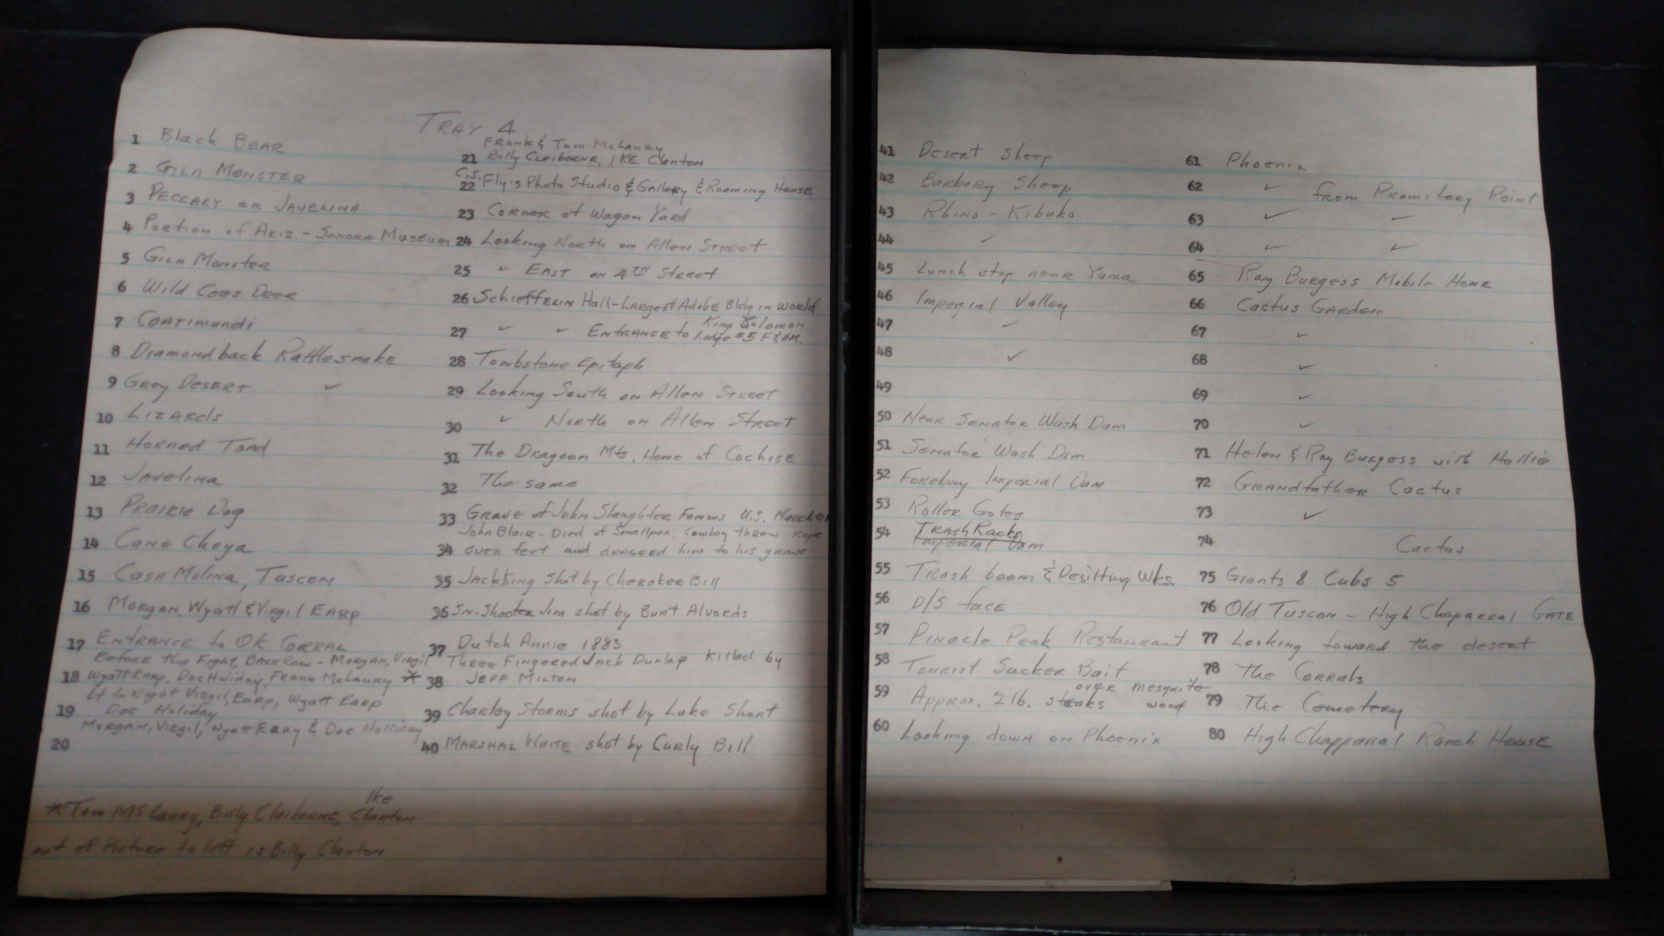 TRAY 4
1 Black BEAR
2 GILA MONSTER
3 PECCARY OR JAVELINA
4 Portion of Ariz. - Sonora Museum
5 Gila Monster
6 Wild Coes Deer
7 COATIMUNDI
8 Diamondback Rattlesnake
9 Grey DESERT ✓
10 LIZARDS
11 Horned Toad
12 Javelina
13 PRAIRIE Dog
14 Cane Choya
15 CASA Molina, TUSCON
16 Morgan, Wyatt & Virgil EARP
17 ENTRANCE to OK CORRAL
Before the Fight, BACK Row - Morgan, Virgil
18 Wyatt Earp, Doc Holiday, Frank McLaury *
Lt to Right Virgil Earp, Wyatt Earp
19 Doc Holiday
Morgan, Virgil, Wyatt Earp & Doc Holliday
20
Ike
* Tom McLaury, Billy Claiborne, Clanton
out of Picture to left is Billy Clanton
FRANK & Tom McLaury
21 Billy Claiborne, IKE Clanton
C.S.
22 Fly's Photo Studio & Gallery & Rooming House
23 CORNER of Wagon Yard
24 Looking North on Allen Street
25 " EAST on 4TH Street
26 Schieffelin Hall - Largest Adobe Bldg in World
King Solomon
27 ✓ ✓ ENTRANCE to Lodge #5 F&AM.
28 Tombstone Epitaph
29 Looking South on Allen Street
30 ✓ North on Allen Street
31 The Dragoon Mts, Home of Cochise
32 The same
33 Grave of John Slaughter Famous U.S. Marshal
John Blair - Died of Smallpox, Cowboy threw rope
34 over feet and dragged him to his grave
35 Jack King shot by Cherokee Bill
36 Six-Shooter Jim shot by Burt Alvords
37 Dutch Annie 1883
Three Fingered Jack Dunlap Killed by
38 JEFF MILTON
39 Charley Storms shot by Luke Short
40 MARSHAL WHITE shot by Curly Bill
41 Desert Sheep
42 Barbary Sheep
43 Rhino - Kibuko
44 ✓
45 Lunch stop near Yuma
46 Imperial Valley
47 ✓
48 ✓
49
50 Near Senator Wash Dam
51 Senator Wash Dam
52 Forebay Imperial Dam
53 Roller Gates
54 Trash Racks
Imperial Dam
55 Trash boom & Desilting Wks.
56 D/S face
57 Pinacle Peak Restaurant
58 Tourist Sucker Bait
over mesquite
59 Approx. 2 lb. steaks wood
60 Looking down on Phoenix
61 Phoenix
62 ✓ from Promitory Point
63 ✓ ✓
64 ✓ ✓
65 Ray Burgess Mobile Home
66 Cactus Garden
67 ✓
68 ✓
69 ✓
70 ✓
71 Helen & Ray Burgess with Hollis
72 GRANDfather Cactus
73 ✓
74 Cactus
75 Giants 8 Cubs 5
76 Old Tuscon - High Chaparral GATE
77 Looking toward the desert
78 The Corrals
79 The Cemetery
80 High Chapparral Ranch House